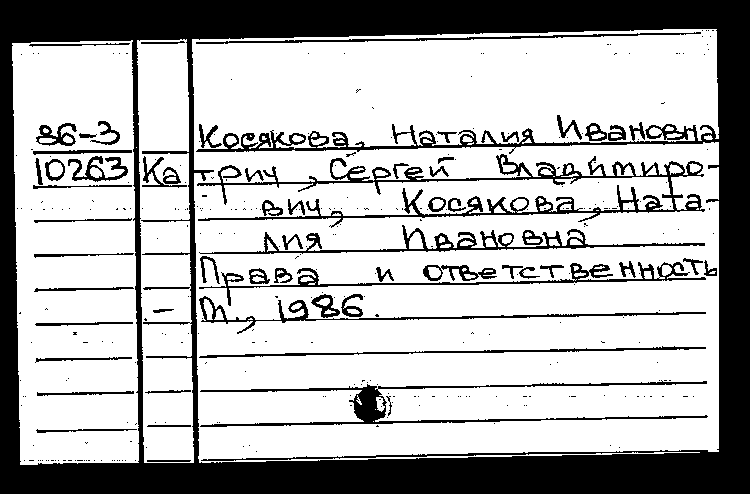 86-3 Косякова, Наталия Ивановна
10263 Катрич, Сергей Владимиро-
вич, Косякова, Ната-
лия Ивановна
Права и ответственность
- М., 1986.